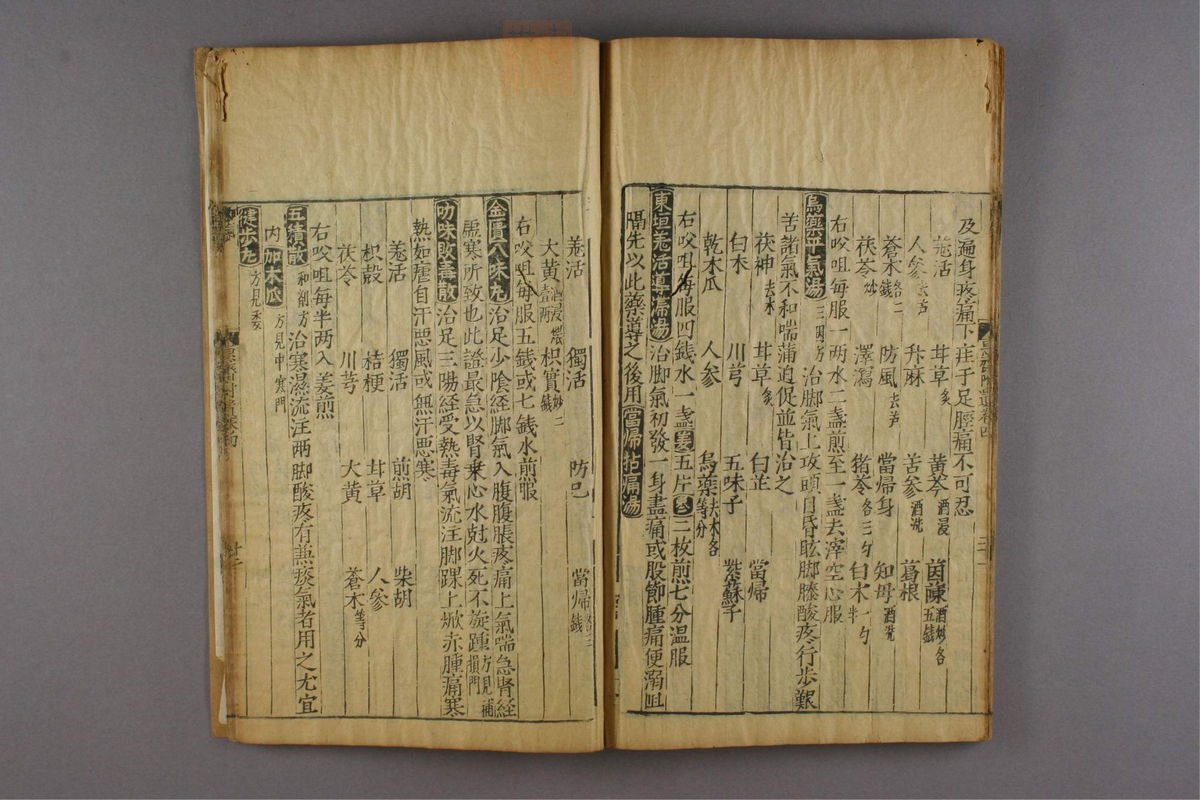 及遍身疼痛下疰于足脛痛不可忍
羗活 甘草炙 黄芩酒浸 茵蔯酒炒各五錢
人參去芦 升麻 苦参酒洗 葛根
蒼术各二錢 防風去芦 當歸身 知母酒洗
茯苓炒 澤瀉 猪苓各三勺 白术一勺半
右㕮咀每服一两水二盞煎至一盞去滓空心服
烏藥平氣湯三因方治脚氣上攻頭目昏眩脚膝酸疼行歩艱
苦諸氣不和喘蒲迫促並皆治之
茯神去木 甘草炙 白芷 當歸
白术 川芎 五味子 紫蘇子
乾木瓜 人參 烏藥去木各等分
右㕮咀每服四錢水一盞姜五片枣二枚煎七分温服
東垣羗活導滯湯治脚氣初發一身盡痛或股節腫痛便溺阻
隔先以此藥導之後用當歸拈痛湯
羗活 獨活 防已 當歸各三錢
大黄酒浸煨壹两 枳實炒二錢
右㕮咀每服五錢或七錢水煎服
金匱八味丸治足少陰経脚氣入腹腹脹疼痛上氣喘急腎経
虛寒所致也此證最急以腎乗心水尅火死不旋踵方見補損門
加味敗毒散治足三陽経受熱毒氣流注脚踝上焮赤腫痛寒
熱如瘧自汗悪風或無汗悪寒
羗活 獨活 前胡 柴胡
枳殼 桔梗 甘草 人參
茯苓 川芎 大黄 蒼术等分
右㕮咀每半两入姜煎
五積散和劑方治寒濕流注两脚酸疼有兼痰氣者用之尤宜
内加木瓜方見中寒門
健步丸方見